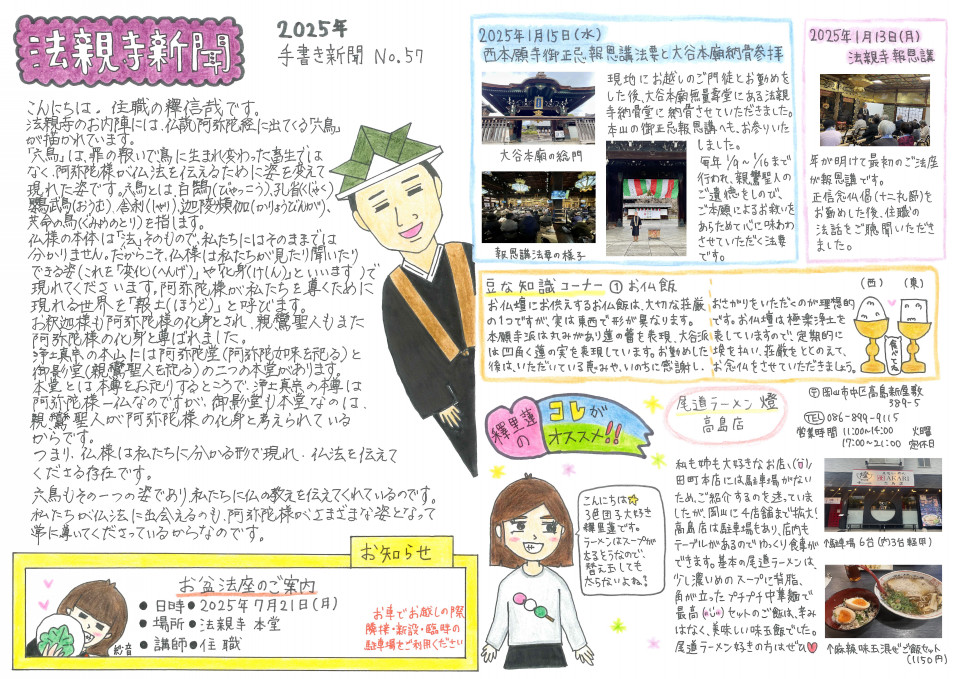 法親寺新聞
2025年
手書き新聞 No.57
こんにちは。住職の釋信哉です。
法親寺のお内陣には、仏説阿弥陀経に出てくる「六鳥」
が描かれています。
「六鳥」は、罪の報いで鳥に生まれ変わった畜生では
なく、阿弥陀様が仏法を伝えるために姿を変えて
現れた姿です。六鳥とは白鵠(びゃっこう)、孔雀(くじゃく)
鸚鵡(おうむ)、舎利(しゃり)、迦陵頻伽(かりょうびんが)、
共命の鳥(ぐみょうのとり)を指します。
仏様の本体は「法」そのもので、私たちにはそのままでは
分かりません。だからこそ、仏様は私たちが見たり聞いたり
できる姿(これを「変化(へんげ)」や「化身(けしん)」といいます)で
現れてくださいます。阿弥陀様が私たちを導くために
現れる世界を「報土(ほうど)」と呼びます。
お釈迦様も阿弥陀様の化身とされ、親鸞聖人もまた
阿弥陀様の化身と尊ばれました。
浄土真宗の本山には阿弥陀堂(阿弥陀如来を祀る)と
御影堂(親鸞聖人を祀る)の二つの本堂があります。
本堂とは本尊をお祀りするところで、浄土真宗の本尊は
阿弥陀様一仏なのですが、御影堂も本堂なのは、
親鸞聖人が阿弥陀様の化身と考えられている
からです。
つまり、仏様は私たちに分かる形で現れ、仏法を伝えて
くださる存在です。
六鳥もその一つの姿であり、私たちに仏の教えを伝えてくれているのです。
私たちが仏法に出会えるのも、阿弥陀様がさまざまな姿となって
常に導いてくださっているからなのです。
お知らせ
お盆法座のご案内
●日時●2025年7月21日(月)
●場所●法親寺 本堂
●講師●住職
お車でお越しの際、
隣接・新設・臨時の
駐車場をご利用ください
2025年1月15日(水)
西本願寺御正忌報恩講法要と大谷本廟納骨参拝
大谷本廟の総門
報恩講法要の様子
現地にお越しのご門徒とお勤めを
した後、大谷本廟無量寿堂にある法親
寺納骨堂に納骨させていただきました。
本山の御正忌報恩講へも、お参りいた
しました。
毎年1/9~1/16まで
行われ、親鸞聖人の
ご遺徳をしのび、
ご本願によるお救いを
あらためて心に味わわ
させていただく法要
です。
2025年1月13日(月)
法親寺 報恩講
年が明けて最初のご法座
が報恩講です。
正信念仏偈(十二礼節)を
お勤めした後、住職の
法話をご聴聞いただき
ました。
豆な知識コーナー①お仏飯
お仏壇にお供えするお仏飯は、大切な荘厳
の1つですが、実は東西で形が異なります。
本願寺派は丸みがあり蓮の蕾を表現、大谷派
は四角く蓮の実を表現しています。お勤めした
後は、いただいている恵みや、いのちに感謝し、
おさがりをいただくのが理想的
です。お仏壇は極楽浄土を
表していますので、定期的に
埃を払い、荘厳をととのえて、
お念仏をさせていただきましょう。
(西) (東)
食べてネ
釋里蓮の
コレが
オススメ!!
尾道ラーメン 燈
高島店
〒岡山市中区高島新屋敷
389-5
TEL 086-899-9115
営業時間 11:00~14:00 火曜
17:00~21:00 定休日
こんにちは☆
3色団子大好き
釋里蓮です。
ラーメンはスープが
あるそうなので、
替え玉しても
太らないよね!
私も姉も大好きなお店(^^)
田町本店には駐車場がない
ため、ご紹介するのを迷っていま
したが、岡山に4店舗まで拡大!
高島店は駐車場もあり、店内も
テーブルがあるのでゆっくり食事が
できます。基本の尾道ラーメンは、
少し濃いめのスープに背脂、
角が立ったプチプチ中華麺で
最高 セットのご飯は、辛み
はなく、美味しい味玉飯でした。
尾道ラーメン好きの方はぜひ♥
AKARI
↑駐車場 6台(内3台軽用)
↑麻辣味玉混ぜご飯セット
(1150円)